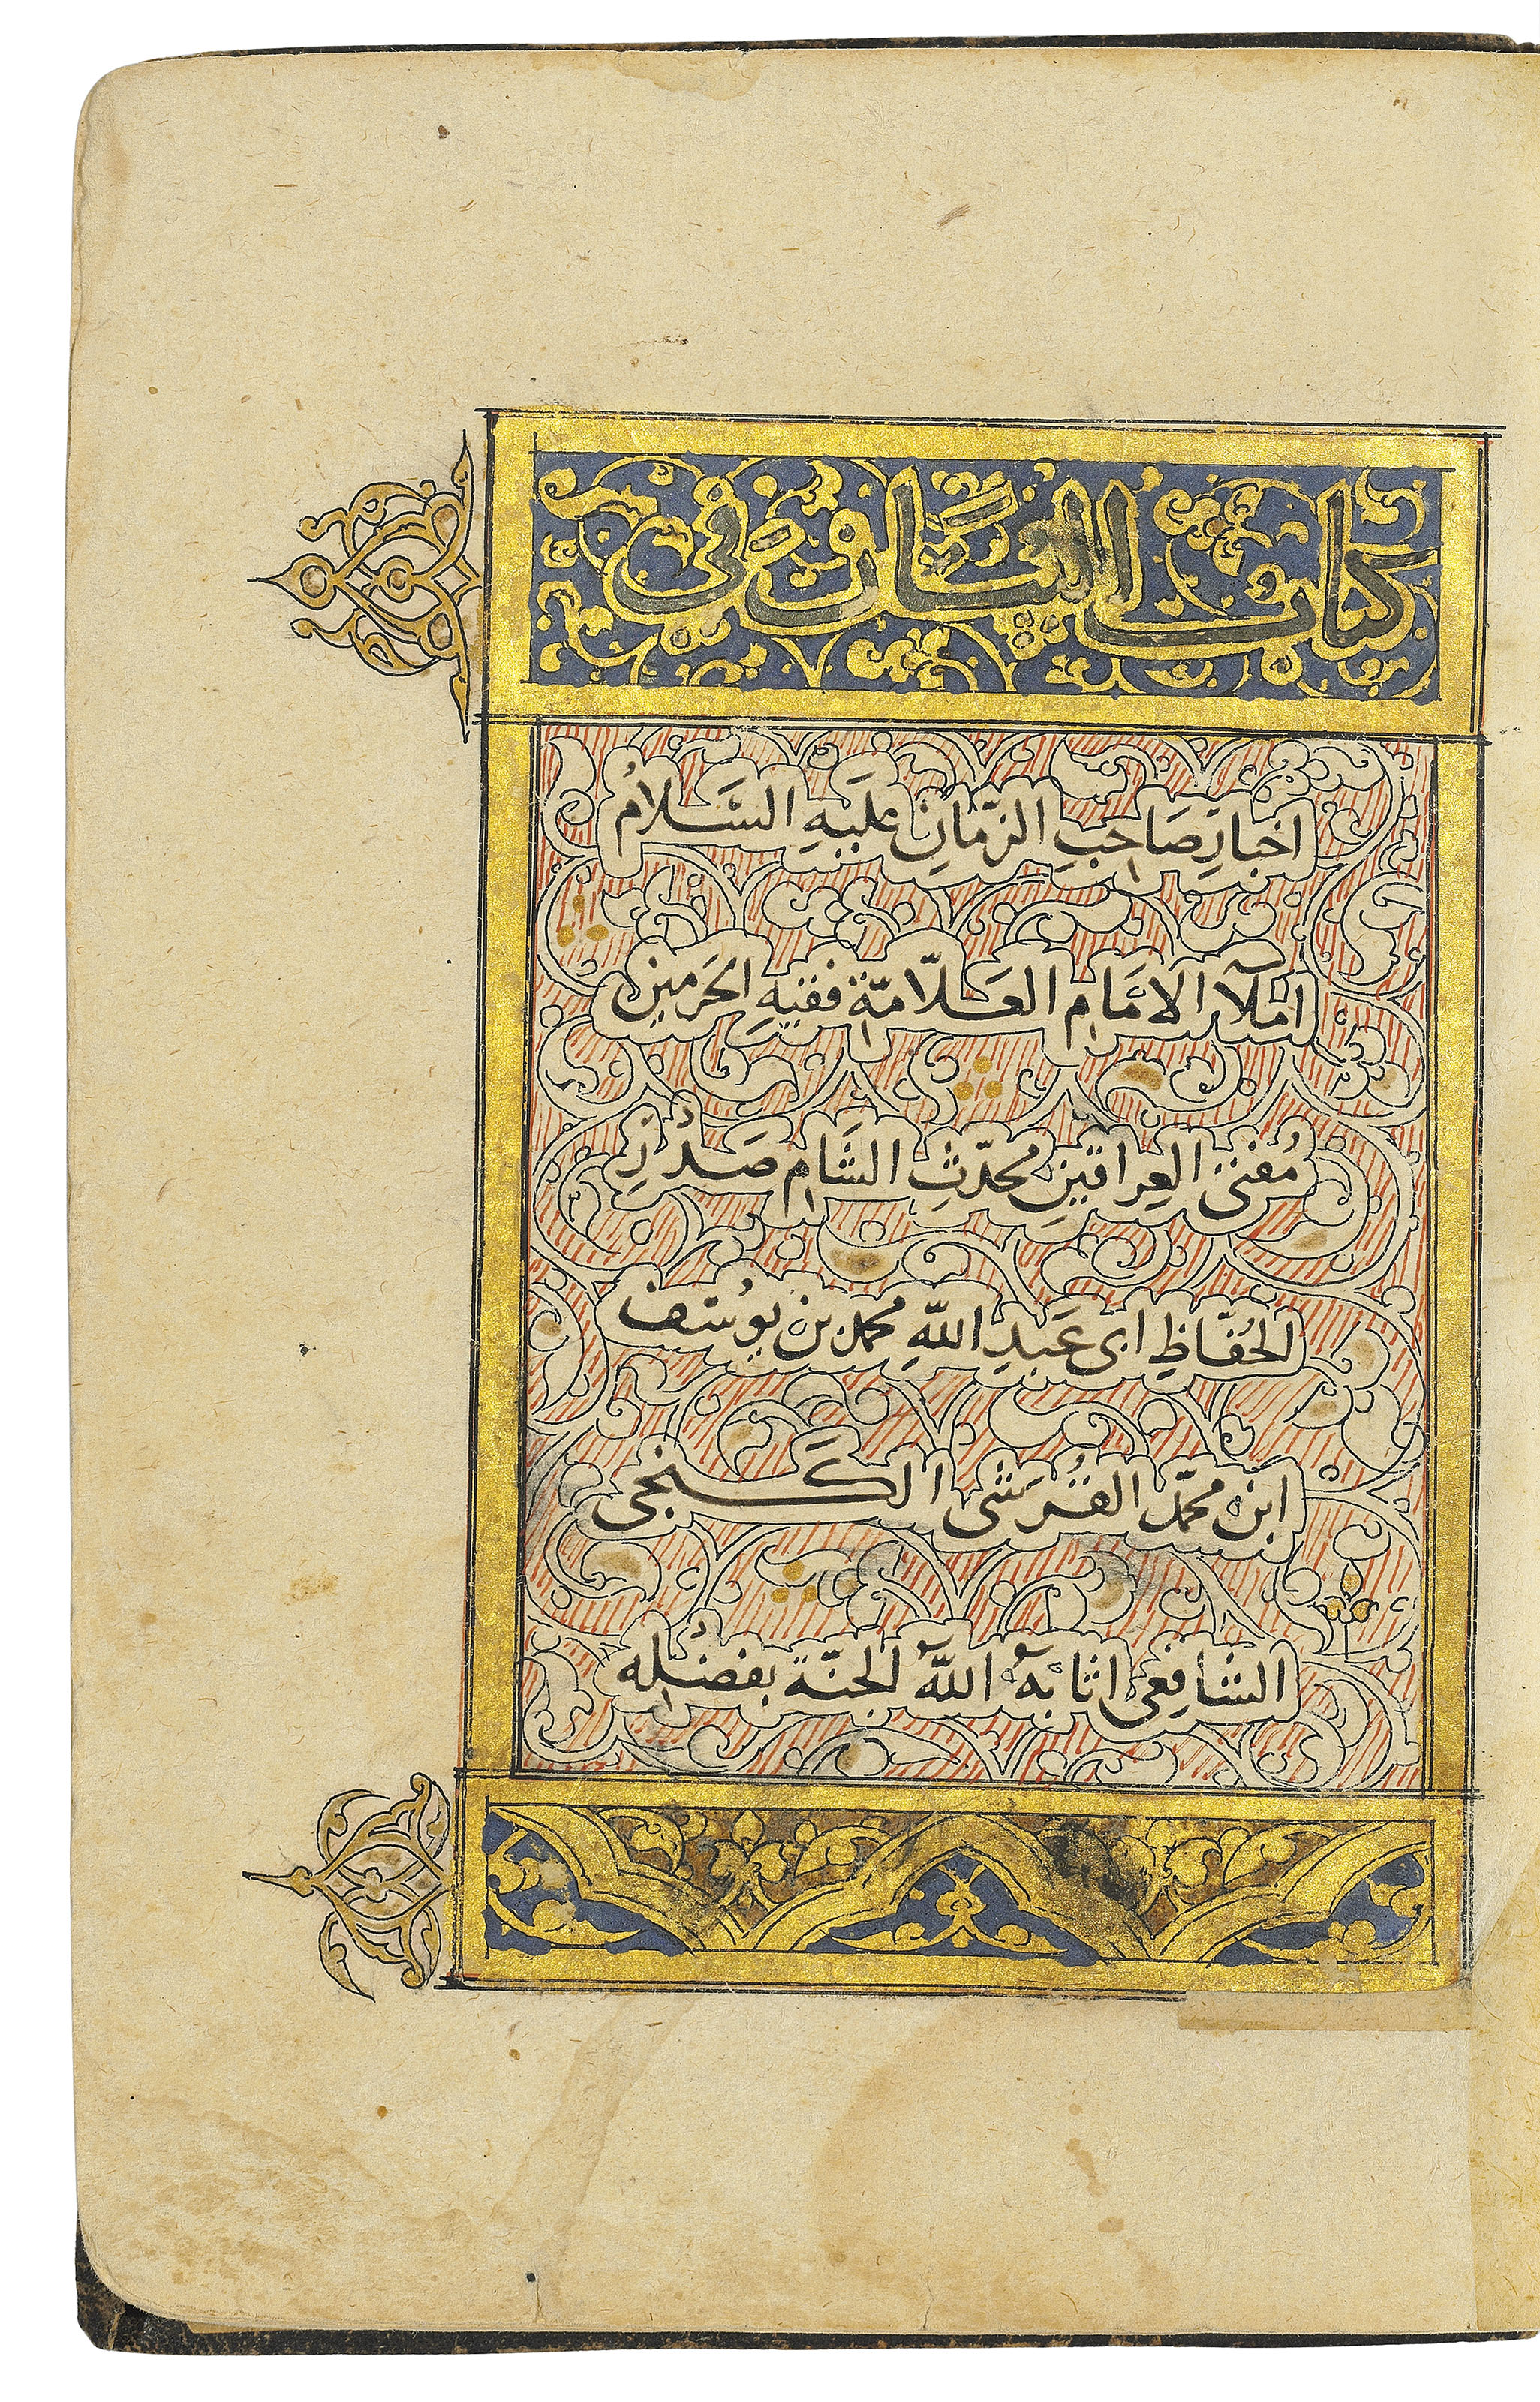 كتاب البيان فى
اخبارِ صَاحِبِ الزّمانِ عليَهِ السَّلامُ
املآ الامَام العَلّامّة فقيهِ الحَرمين
مُفتى العِراقيَنِ محدّثِ الشَّام صَدْرِ
الحُفّاظِ ابى عَبدِ اللّهِ محمد بن يوُسُف
ابن محمّد القُرَشى الكَنجى
الشافِعى اثابهُ اللّهُ الجنّة بفضْلِه